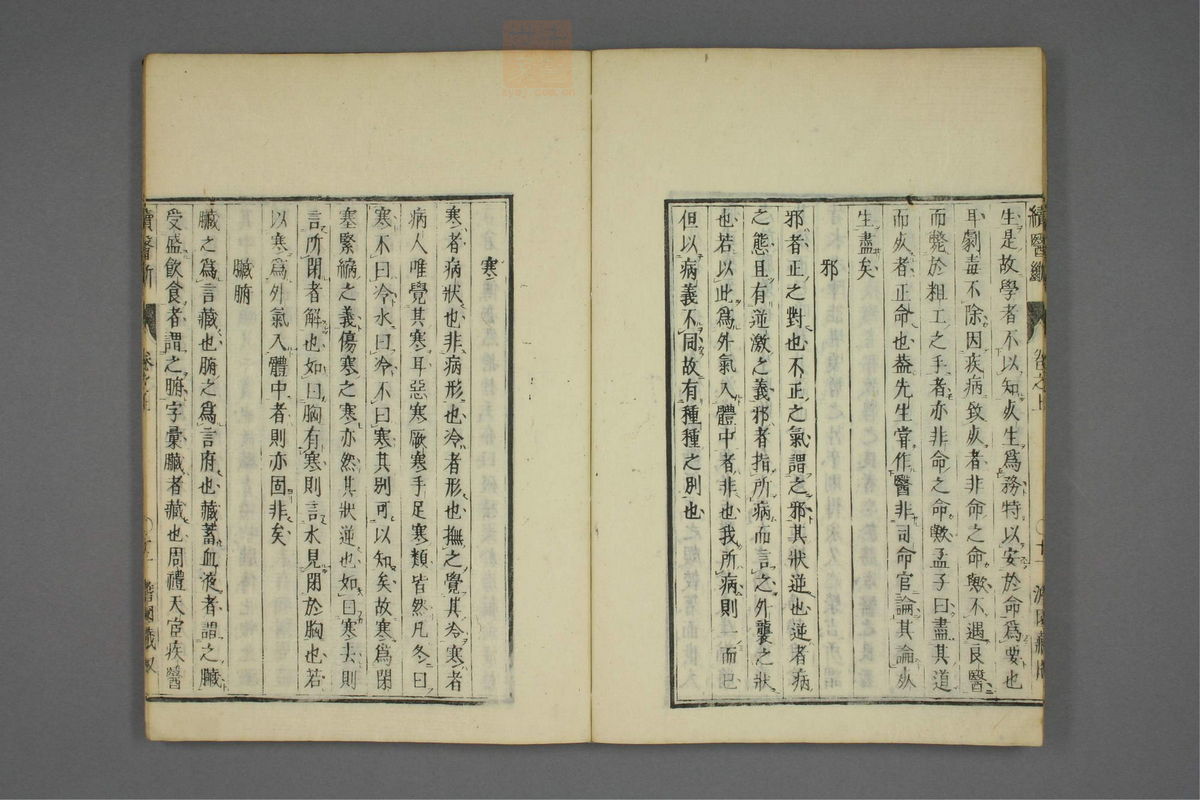 生是故學者不以知死生爲務特以安於命爲要也
耳劇毒不除因疾病致死者非命之命歟不遇良醫
而斃於粗工之手者亦非命之命歟孟子曰盡其道
而死者正命也蓋先生嘗作醫非司命官論其論死
生盡矣
邪
邪者正之對也不正之氣謂之邪其狀逆也逆者病
之態且有逆激之義邪者指所病而言之外襲之狀
也若以此爲外氣入體中者非也我所病則一而已
但以病義不同故有種種之別也
寒
寒者病狀也非病形也冷者形也撫之覺其冷寒者
病人唯覺其寒耳惡寒厥寒手足寒類皆然凡冬曰
寒不曰冷水曰冷不曰寒其別可以知矣故寒爲閉
塞緊縮之義傷寒之寒亦然其狀逆也如曰寒去則
言所閉者解也如曰胸有寒則言水見閉於胸也若
以寒爲外氣入體中者則亦固非矣
臟腑
臟之爲言藏也腑之爲言府也藏蓄血液者謂之臟
受盛飲食者謂之腑字彙臟者藏也周禮天官疾醫
續醫斷